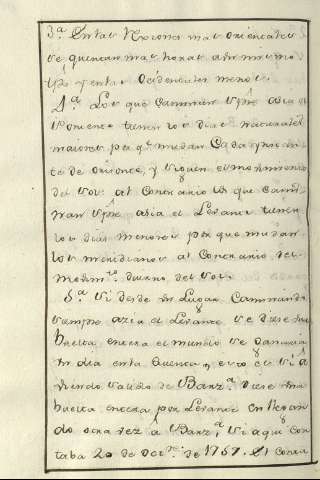 3.ª En las Regiones mas orientales
se quentan mas horas a un mismo
tpõ y en las Occidentales menos.
4.ª Los que Caminan spre acia el
Poniente tienen los dias naturales
maiores pr q.e mudan Cada spre
te de oriente, y siguen el movimiento
del Sol. al Contrario los que Cami
nan spre acia el Levante tienen
los dias menores por que mudan
los meridianos al Contrario del
movim.to diurno del Sol.
5.ª Si desde un Lugar Caminando
siempre azia el Levante se diese una
buelta entera al mundo se ganaria
un dia en la quenta, y assi el si
viendo salido de Barz.ª diese una
buelta entera por Levante en llegan
do otra vez â Barz.ª, si aqui con
taba 20 de Oct.re de 1757. el